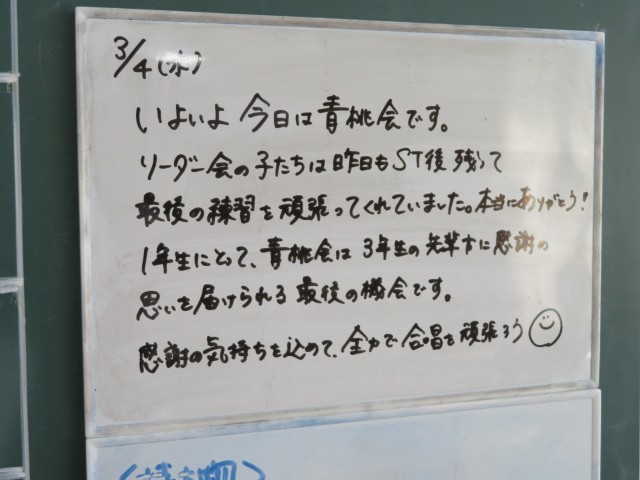 3/4(水)
いよいよ今日は青桃会です。
リーダー会の子たちは昨日もST後残って
最後の練習を頑張ってくれていました。本当にありがとう!
1年生にとって、青桃会は3年生の先輩方に感謝の
思いを届けられる最後の機会です。
感謝の気持ちを込めて、全力で合唱を頑張ろう